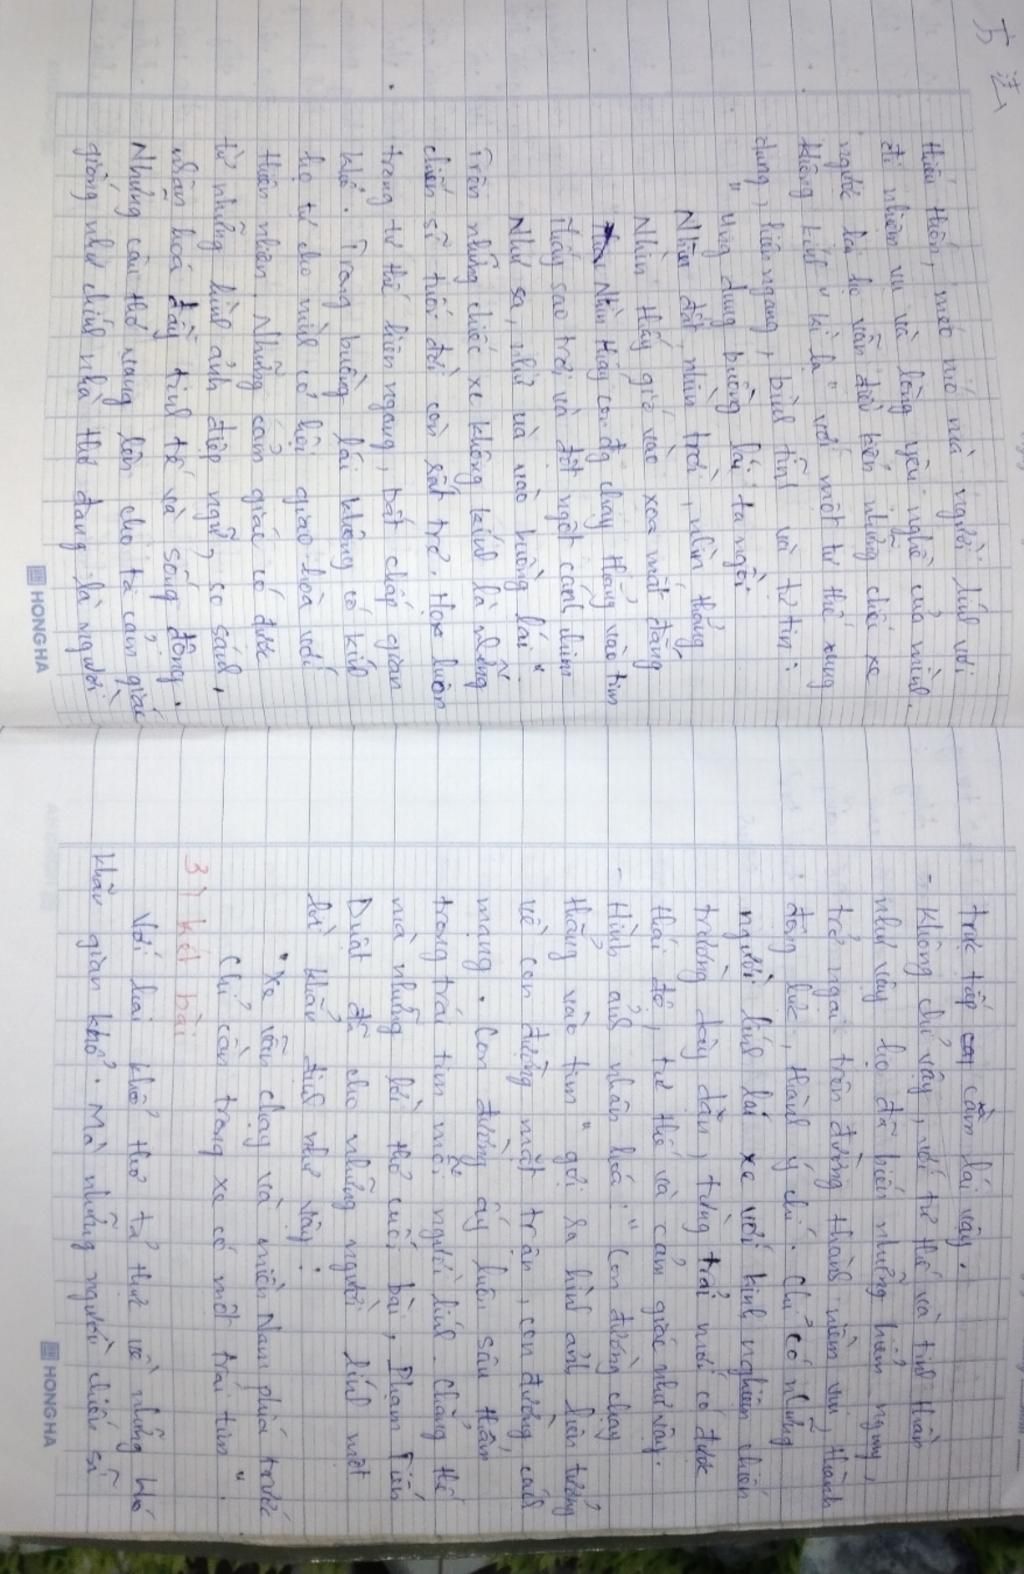 thiếu thốn, méo mó mà người lính với
đi nhiệm vụ và lòng yêu nghề của mình.
người lái họ vẫn điều kiển những chiếc xe
không kính " kì lạ " với một tư thế xung
dung, hiên ngang, bình tĩnh và tự tin :
" Ung dung buồng lái ta ngồi
Nhìn đất, nhìn trời, nhìn thẳng
Nhìn thấy gió vào xoa mắt đắng
Nhìn thấy con đg chạy thẳng vào tim
Thấy sao trời và đột ngột cánh chim
Như sa, như ùa vào buồng lái "
Trên những chiếc xe không kính là những
chiến sĩ tuổi đời còn rất trẻ. Họ luôn
trong tư thế hiên ngang, bất chấp gian
khổ. Trong buồng lái không có kính
họ tự cho mình cơ hội giao hòa với
thiên nhiên. Những cảm giác có được
từ những hình ảnh điệp ngữ, so sánh,
nhân hoá đầy tinh tế và sống động.
Những câu thơ vang lên cho ta cảm giác
giống như chính nhà thơ đang là người
HONG HA
trực tiếp cầm lái vậy.
- Không chỉ vậy, với tư thế và tinh thần
như vậy họ đã biến những hiểm nguy,
trở ngại trên đường thành niềm vui, thành
động lực, thành ý chí. Chỉ có những
người lính lái xe với kinh nghiệm chiến
trường dày dặn, từng trải mới có được
thái độ, tư thế và cảm giác như vậy.
- Hình ảnh nhân hoá " Con đường chạy
thẳng vào tim " gợi ra hình ảnh liên tưởng
về con đường mặt trận, con đường cách
mạng. Con đường ấy luôn sâu thẳm
trong trái tim mỗi người lính. Chẳng thế
mà những lời thơ cuối bài, Phạm Tiến
Duật đã cho những người lính một
lời khẳn định như vậy :
" Xe vẫn chạy vì miền Nam phía trước
Chỉ cần trong xe có một trái tim ".
3) kết bài
Với hai khổ thơ tả thực về những khó
khăn gian khổ. Mà những người chiến sĩ
HONG HA